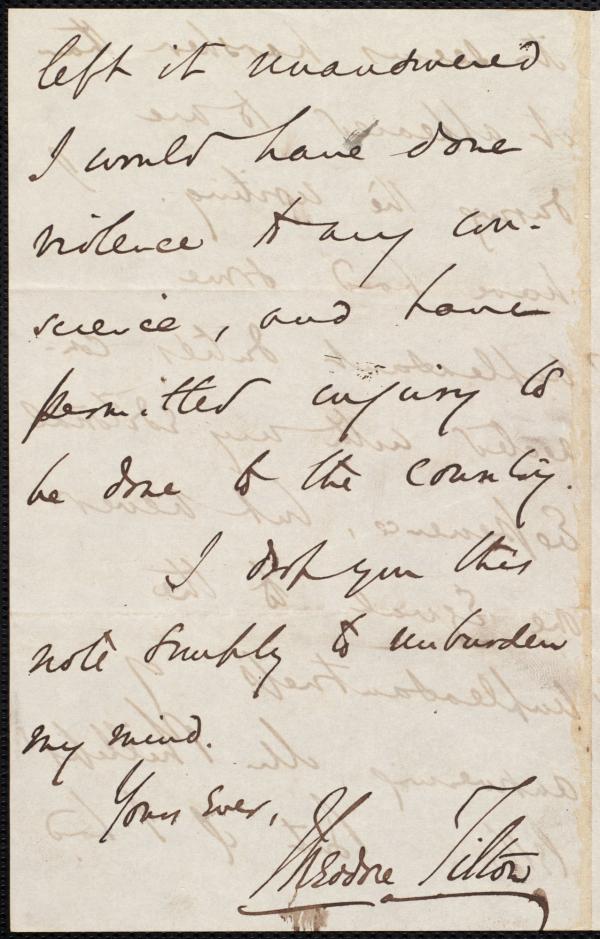 left it unanswered
I would have done
violence to my con-
science, and have
permitted injury to
be done to the country.
I drop you this
note simply to unburden
my mind.
Yours Ever,
Theodore Tilton